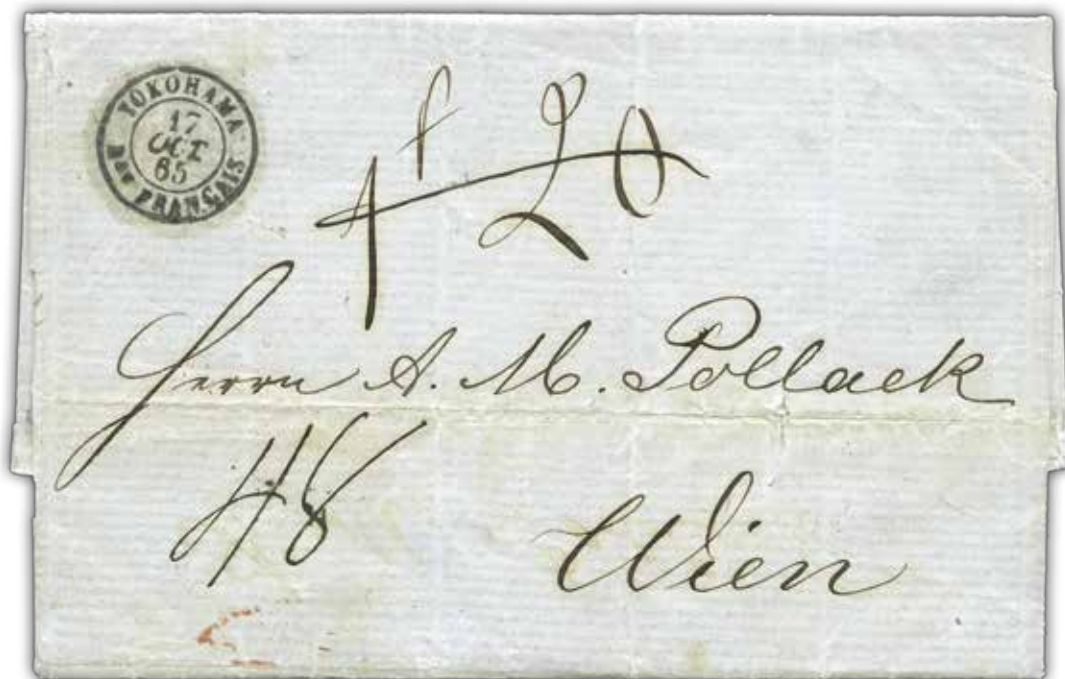 YOKOHAMA
17
OCT
65
Bau FRANÇAIS
1 f 20
Herrn A. M. Pollack
48
Wien